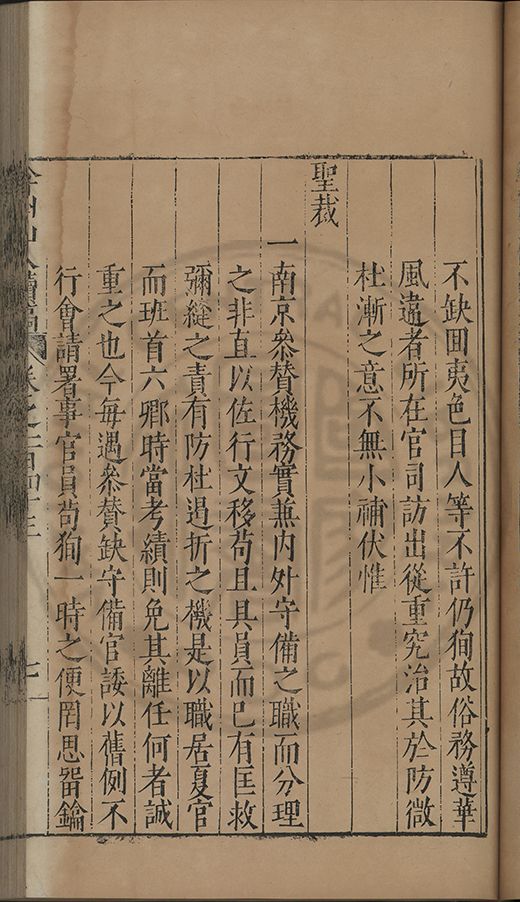 不缺回夷色目人等不許仍狥故俗務遵華
風違者所在官司訪出從重究治其於防微
杜漸之意不無小補伏惟
聖裁
一南京叅賛機務實兼內外守備之職而分理
之非直以佐行文移苟且具員而已有匡救
彌縫之責有防杜遏折之機是以職居夏官
而班首六卿時當考績則免其離任何者誠
重之也今每遇叅賛缺守備官諉以舊例不
行會請署事官員苟狥一時之便罔思畱鑰